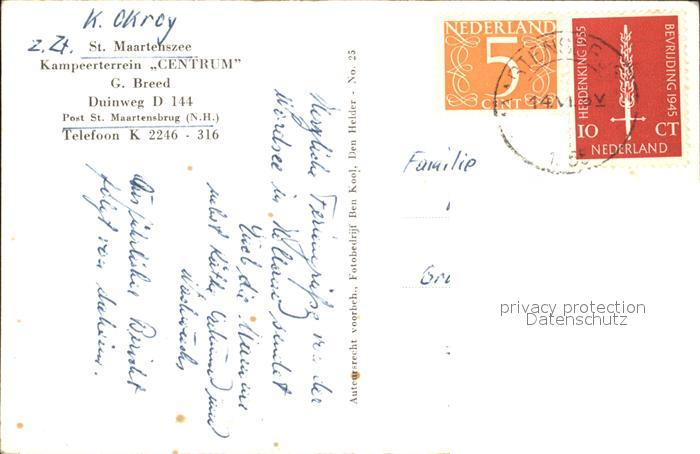 K. Okroy
z. Zt. St. Maartenszee
Kampeerterrein „CENTRUM"
G. Breed
Duinweg D 144
Post St. Maartensbrug (N.H.)
Telefoon K 2246 - 316
Herzliche Feriengrüße von der
Nordsee in Holland sendet
Euch die
nebst Käthe und
Nachwuchs
Ausführlicher Bericht
folgt von daheim.
Auteursrecht voorbeh., Fotobedrijf Ben Kool, Den Helder - No. 25
NEDERLAND
5
CENT
HERDENKING 1955
BEVRIJDING 1945
10 CT
NEDERLAND
Familie
Gr
privacy protection
Datenschutz